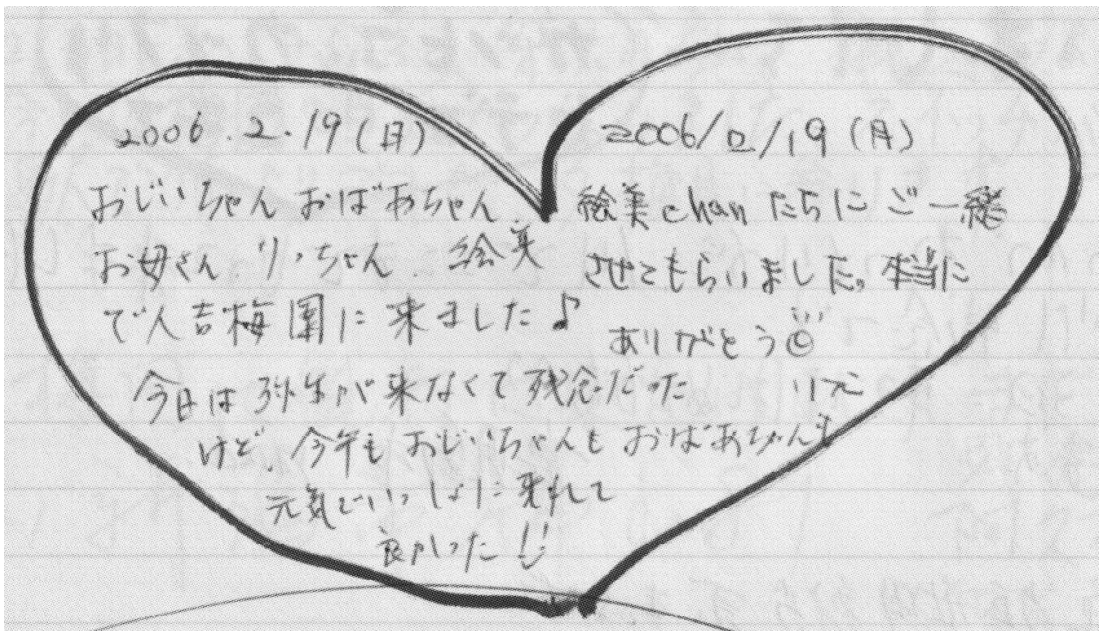 2006.2.19(日)
おじいちゃん おばあちゃん、
お母さん、りっちゃん、絵美
で人吉梅園に来ました♪
今日は弥生が来なくて残念だった
けど、今年もおじいちゃんもおばあちゃんも
元気でいっしょに来れて
良かった!!
2006/2/19(月)
絵美chanたちにご一緒
させてもらいました。本当に
ありがとう☺